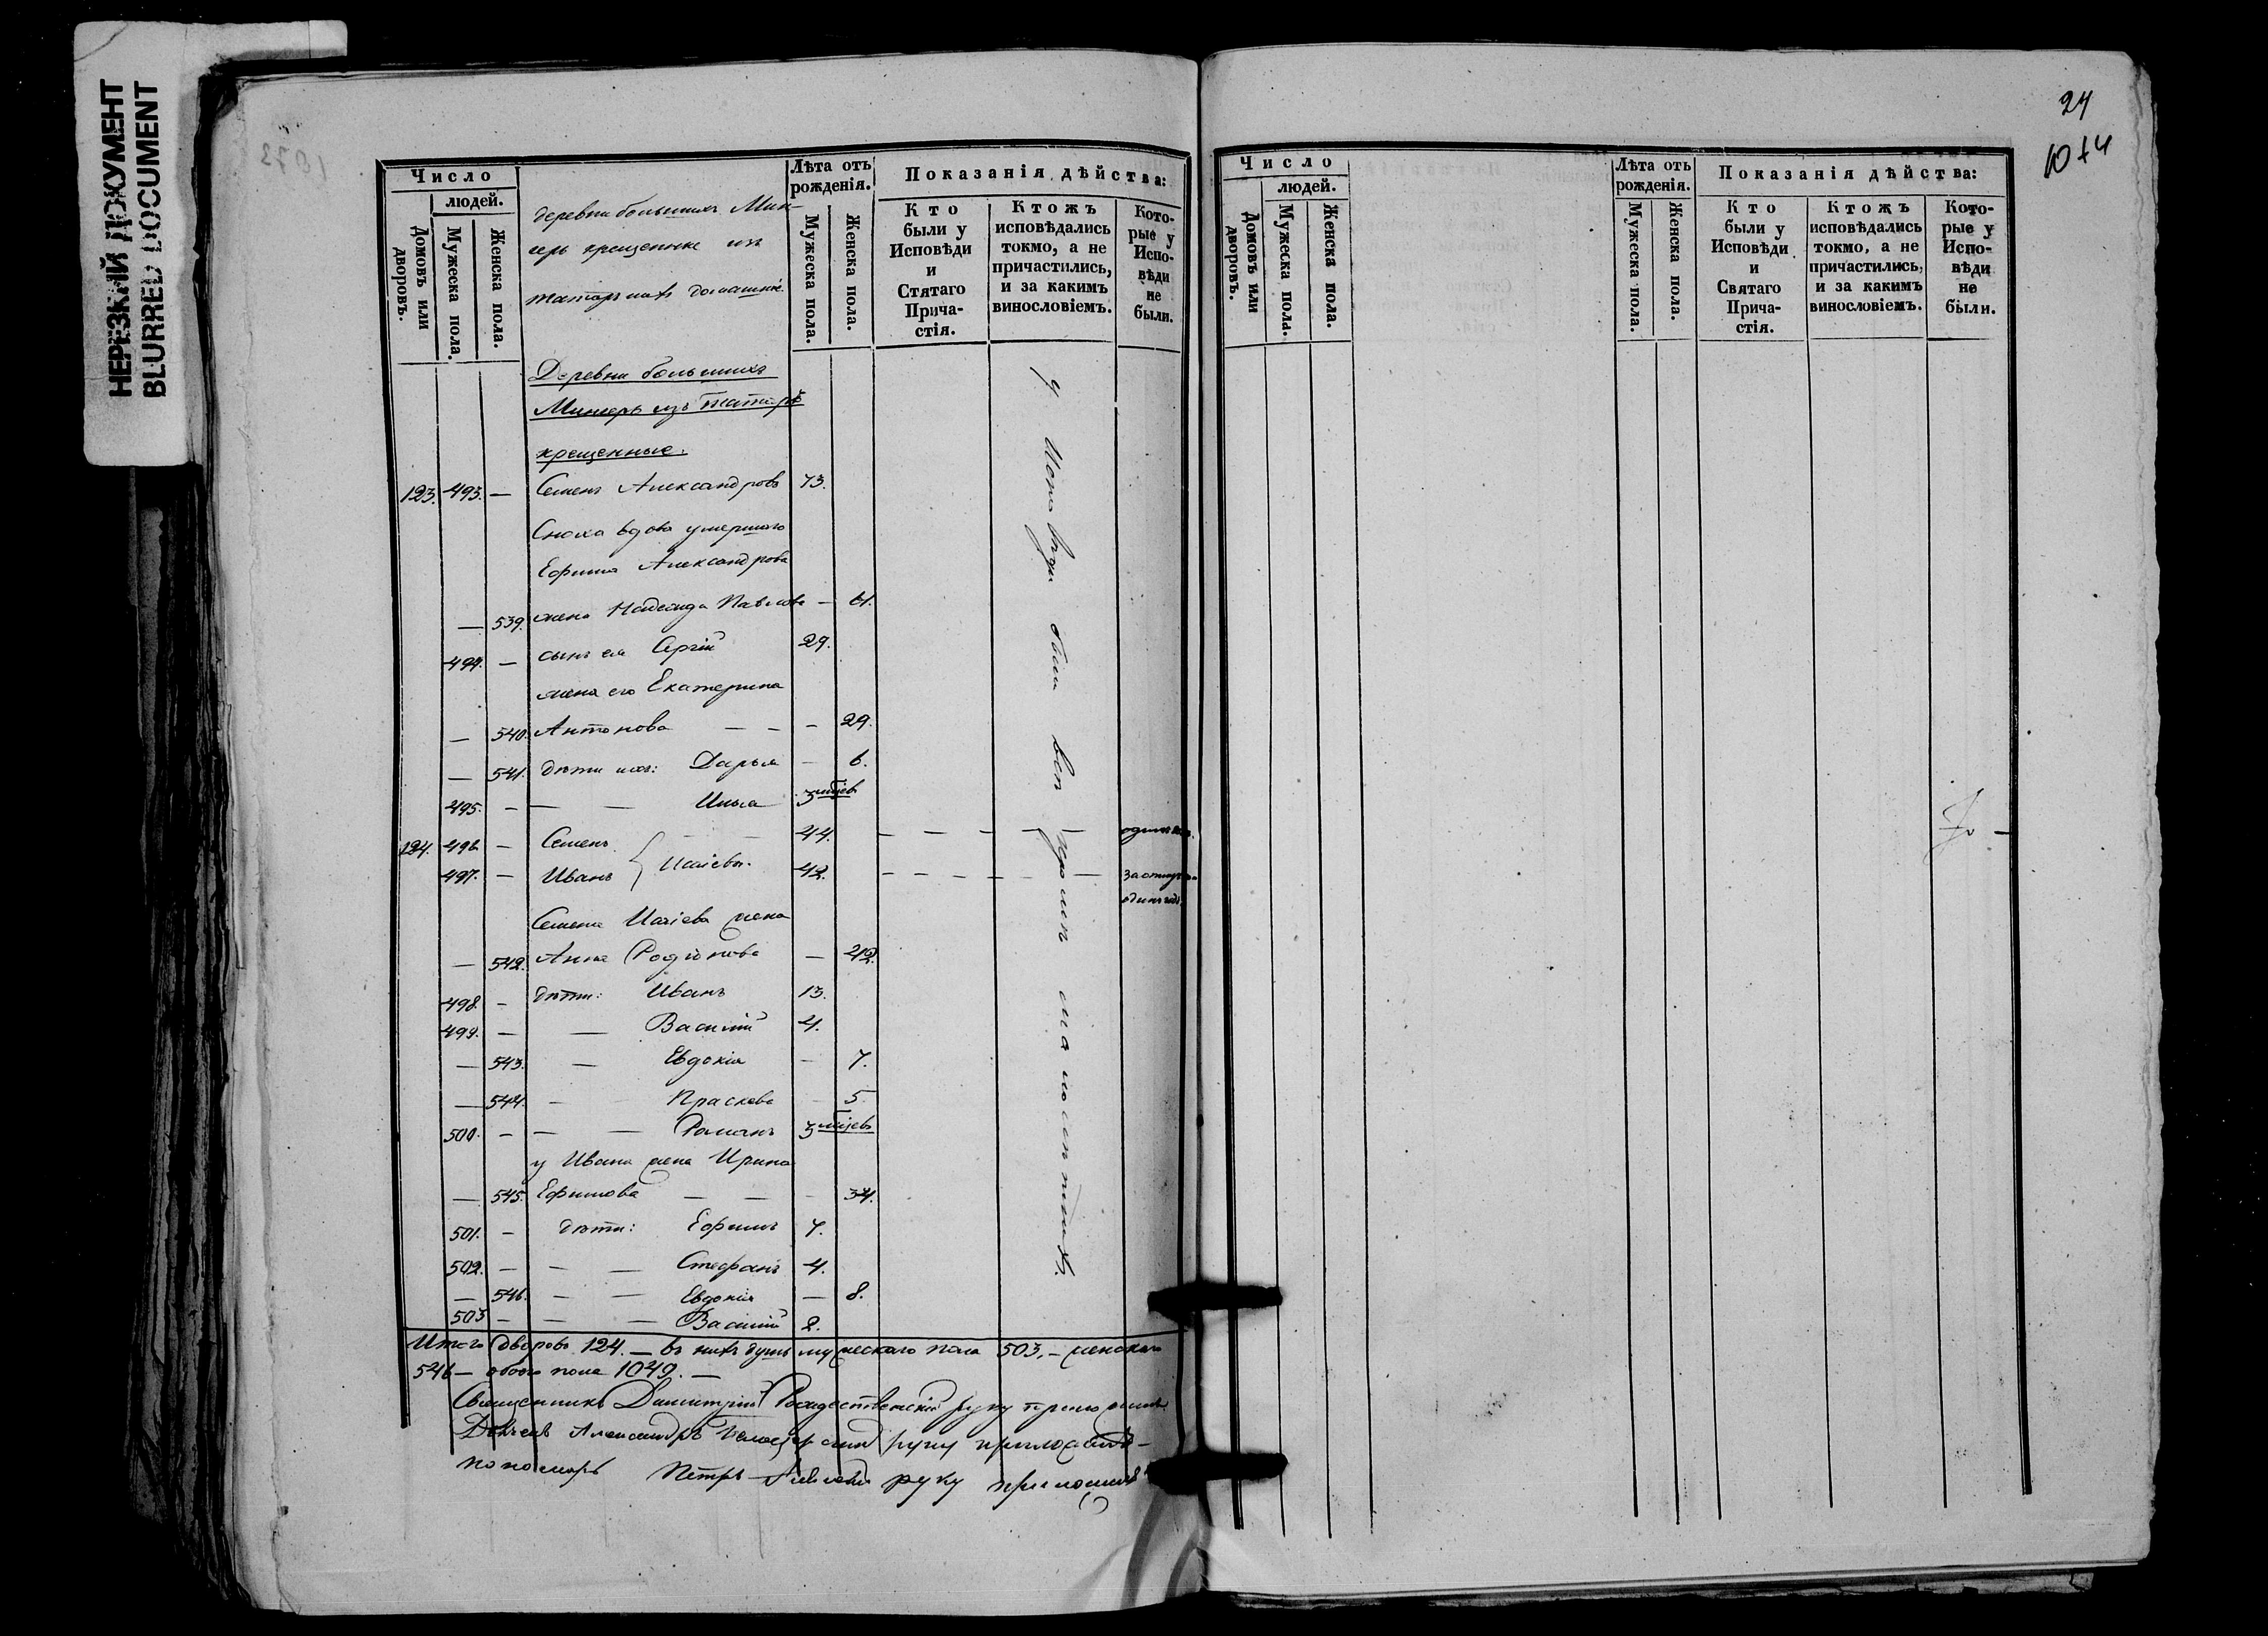 НЕРЕЗКИЙ ДОКУМЕНТ
BLURRED DOCUMENT
Число
людей.
Домовъ или дворовъ.
Мужеска пола.
Женска пола.
деревни большихъ Мин-
герь крещеные изъ
татаръ ихъ домашніе
Лѣта отъ рожденія.
Мужеска пола.
Женска пола.
Показанія дѣйства:
Кто были у Исповѣди и Стятаго Прича-стія.
Ктожъ исповѣдались токмо, а не причастились, и за какимъ винословіемъ.
Кото-рые у Испо-вѣди не были.
Деревни большихъ
Мингерь изъ татаръ
крещенные.
123. 493. — Семенъ Александровъ 73.
Сноха вдова умершаго
Ефима Александрова
— 539. жена Надежда Павлова — 61.
494. — сынъ ея Сергій 29.
жена его Екатерина
— 540. Антонова — — — 29.
— 541. дѣти ихъ: Дарья — 6.
495. — — — Илья 3 мѣсев
124. 496 — Семенъ — — 44. — — — —
497. — Иванъ } Исаіевы. 42. — — — — — —
одинъ годъ.
Семена Исаіева жена
— 542. Анна Родіонова — 42.
498. — дѣти: Иванъ 13.
499. — — Василій 4.
— 543. — Евдокія — 7.
— 544. — Праскева — 5
500. — — — Романъ 3 мѣсев
у Ивана жена Ирина
— 545. Ефимова — — — 34.
501. — дѣти: Ефимъ 7.
502. — — — Стефанъ 4.
— 546. — — Евдокія — 8.
503 — — — Василій 2.
у Исповѣди были всѣ кромѣ малолѣтныхъ.
Итого дворовъ 124. — въ нихъ душъ мужескаго пола 503. — женскаго
546 — обоего пола 1049. —
Священникъ Димитрій Рождественскій руку приложилъ
Дьячекъ Александръ руку приложилъ —
пономарь Петръ руку приложилъ
24
1074
Число
людей.
Домовъ или дворовъ.
Мужеска пола.
Женска пола.
Лѣта отъ рожденія.
Мужеска пола.
Женска пола.
Показанія дѣйства:
Кто были у Исповѣди и Святаго Прича-стія.
Ктожъ исповѣдались токмо, а не причастились, и за какимъ винословіемъ.
Кото-рые у Испо-вѣди не были.